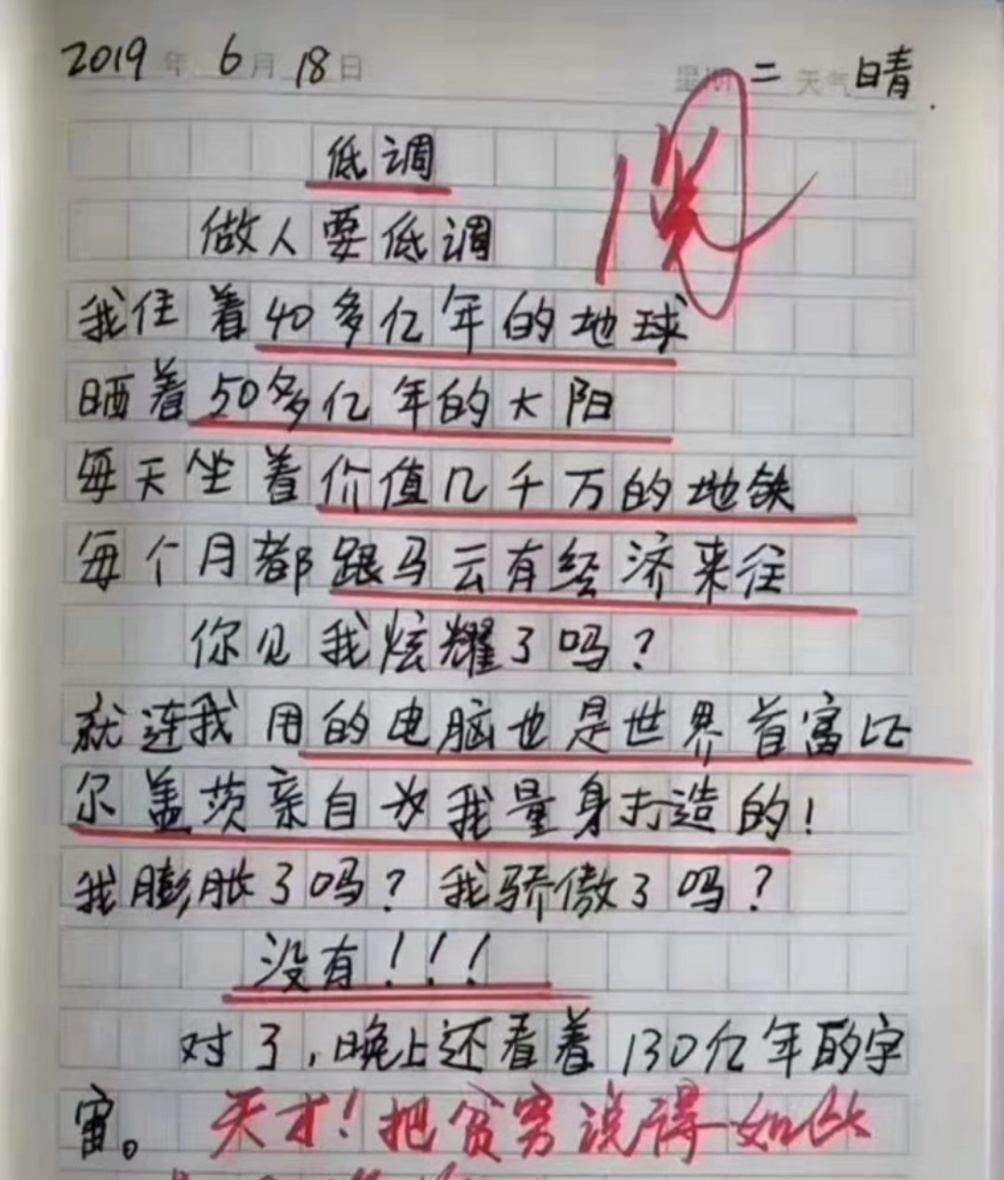 2019年 6月 18日 星期二 天气晴.
低调
做人要低调
我住着40多亿年的地球
晒着50多亿年的大阳
每天坐着价值几千万的地铁
每个月都跟马云有经济来往
你见我炫耀了吗?
就连我用的电脑也是世界首富比
尔盖茨亲自为我量身打造的!
我膨胀了吗?我骄傲了吗?
没有!!!
对了,晚上还看着130亿年的宇
宙。天才!把贫穷说得如此